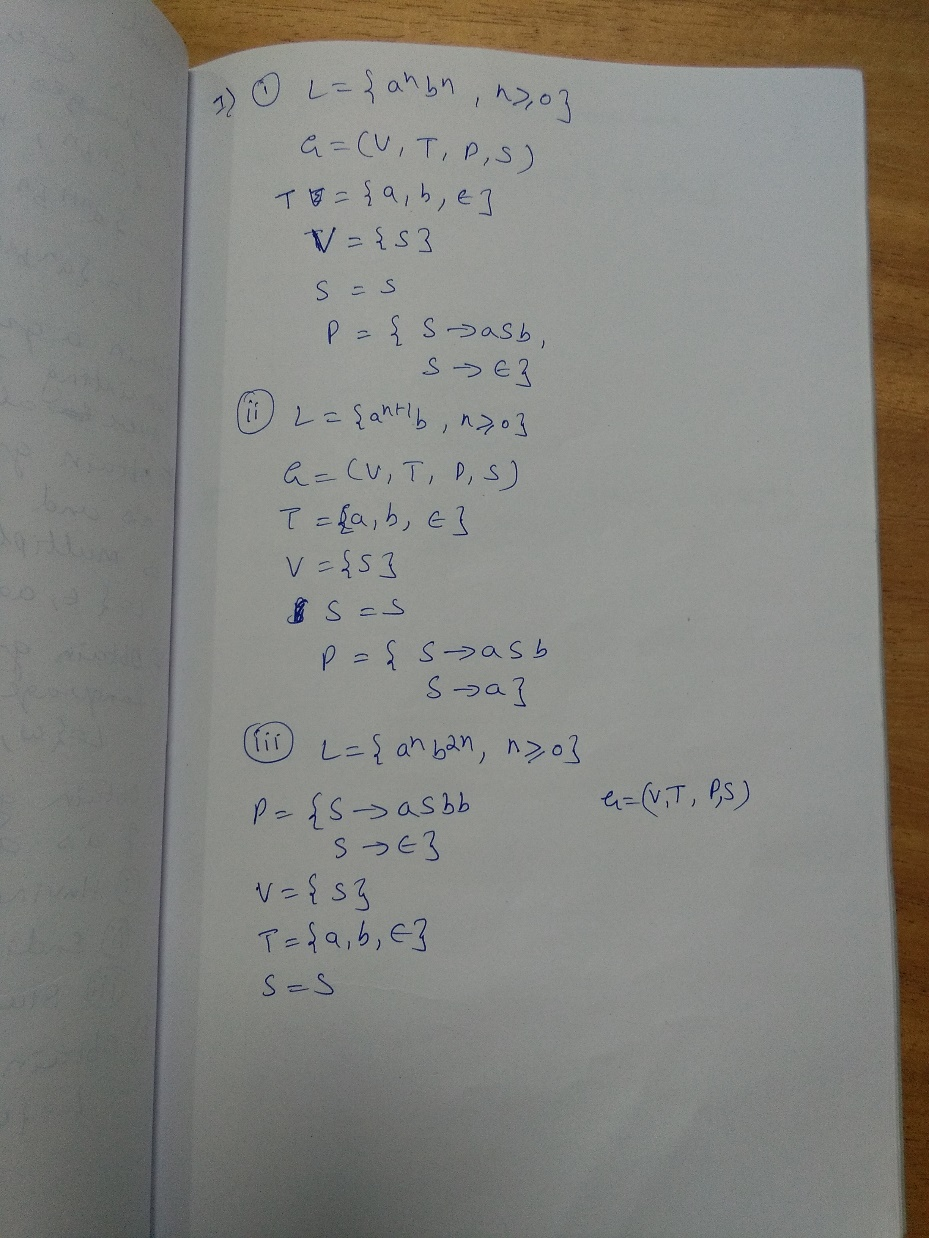 1) i L = { aⁿbⁿ , n⩾0}
G = (V, T, P, S)
T = {a, b, ∈}
V = {S}
S = S
P = { S → aSb,
S → ∈}
ii L = {aⁿ⁺¹b , n⩾0}
G = (V, T, P, S)
T = {a, b, ∈}
V = {S}
S = S
P = { S → aSb
S → a}
iii L = { aⁿb²ⁿ, n⩾0}
P = {S → aSbb G=(V,T, P,S)
S → ∈}
V = { S}
T = {a, b, ∈}
S = S